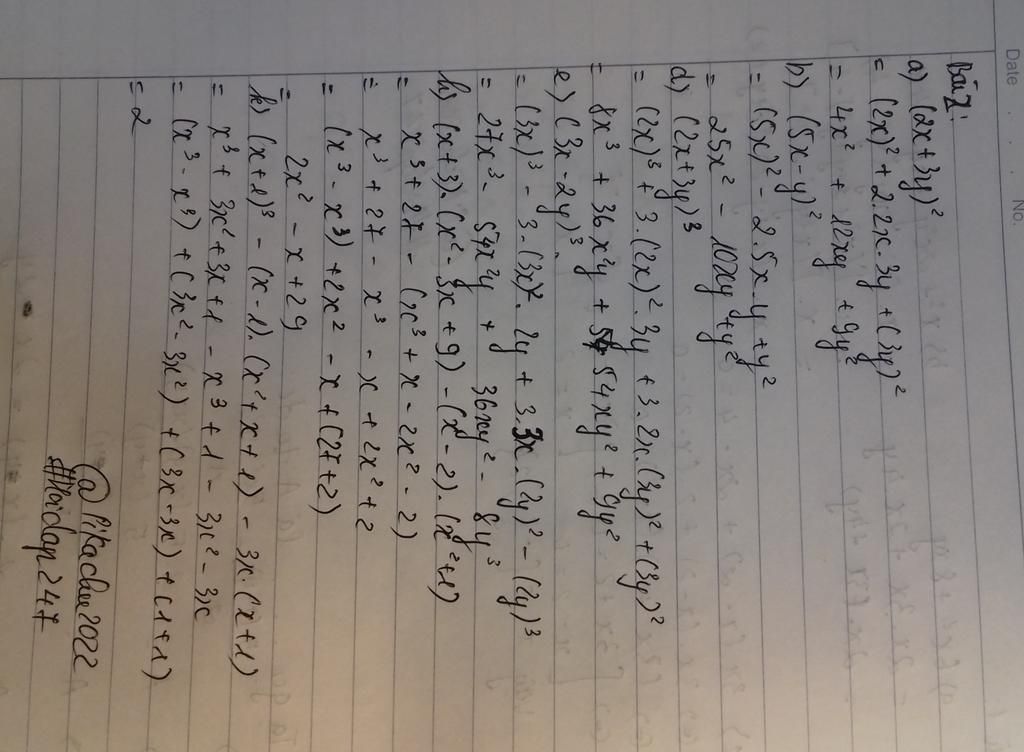 Date
No.
Bài 1:
a) (2x+3y)²
= (2x)² + 2.2x.3y + (3y)²
= 4x² + 12xy + 9y²
b) (5x-y)²
= (5x)² - 2.5x.y + y²
= 25x² - 10xy + y²
d) (2x+3y)³
= (2x)³ + 3.(2x)².3y + 3.2x.(3y)² + (3y)²
= 8x³ + 36x²y + 54xy² + 9y²
e) (3x-2y)³.
= (3x)³ - 3.(3x)².2y + 3.3x.(2y)² - (2y)³
= 27x³ - 54x²y + 36xy² - 8y³
h) (x+3).(x²-3x+9) - (x-2).(x²+1)
= x³ + 27 - (x³ + x - 2x² - 2)
= x³ + 27 - x³ - x + 2x² + 2
= (x³ - x³) + 2x² - x + (27+2)
= 2x² - x + 29
k) (x+1)³ - (x-1).(x²+x+1) - 3x.(x+1)
= x³ + 3x² + 3x + 1 - x³ + 1 - 3x² - 3x
= (x³ - x³) + (3x² - 3x²) + (3x - 3x) + (1+1)
= 2
@Pikachu2022
#Hoidap247